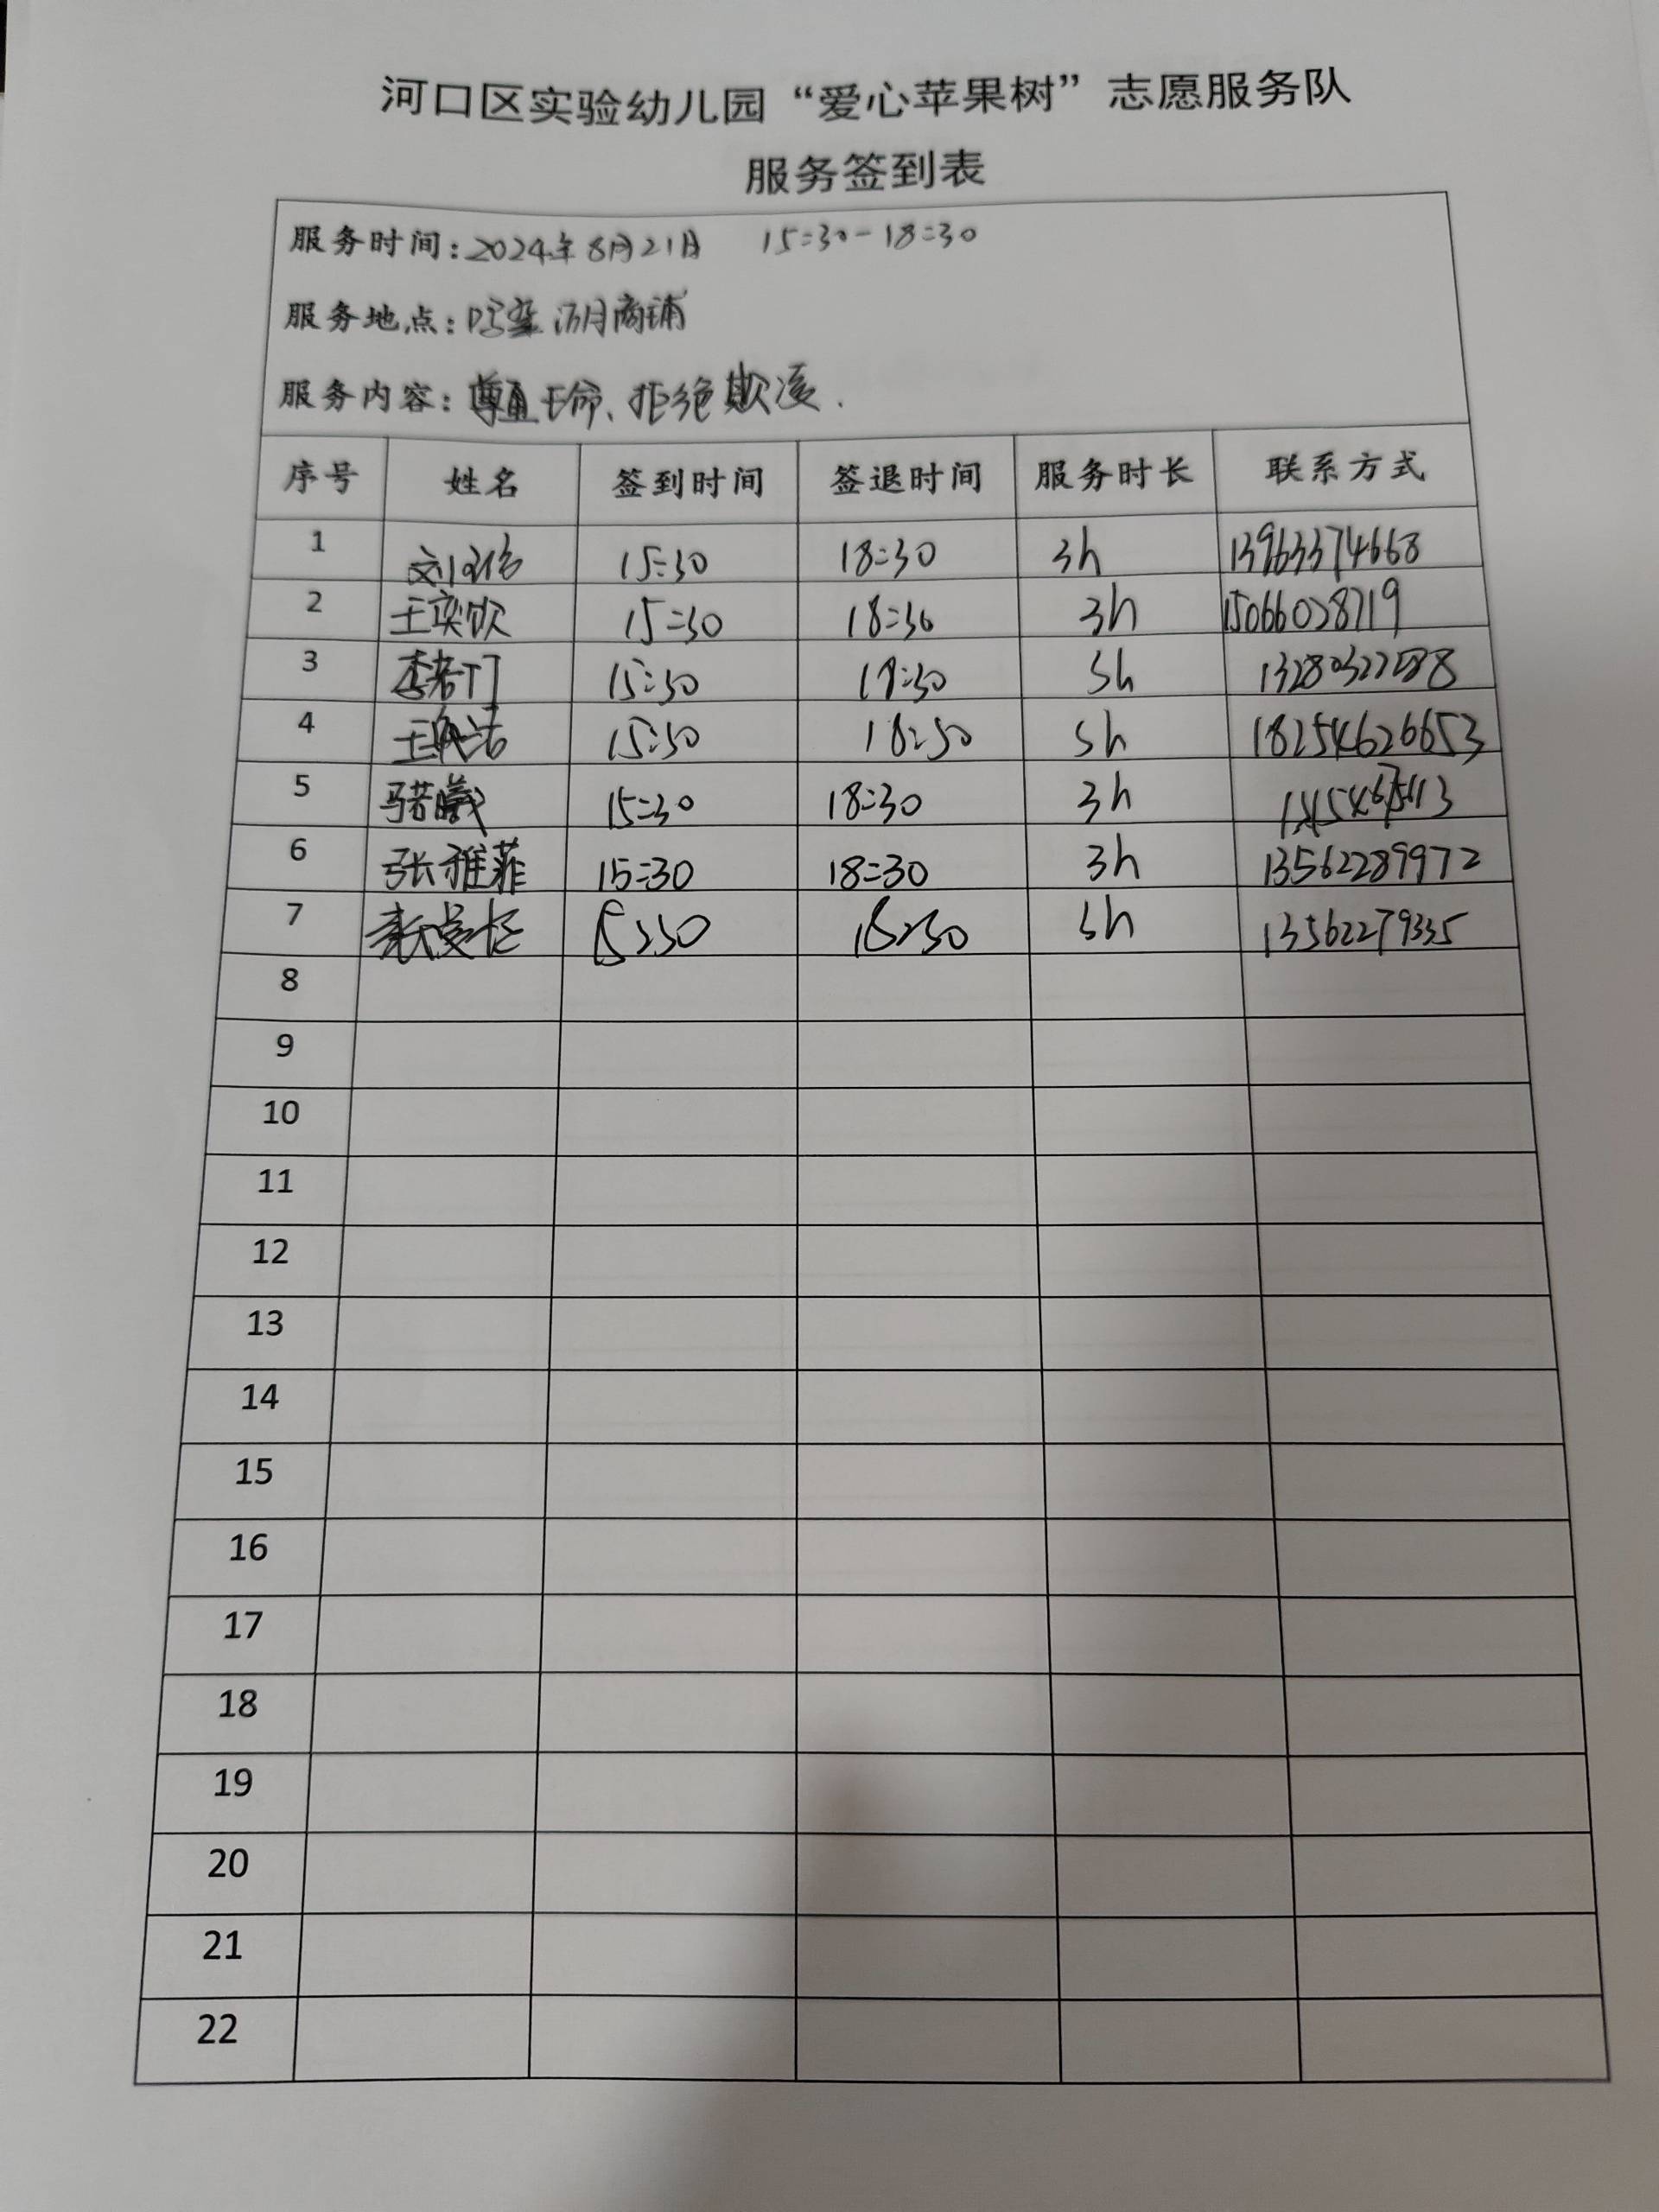 河口区实验幼儿园“爱心苹果树”志愿服务队
服务签到表
服务时间:2024年8月21日 15:30-18:30
服务地点: 商铺
服务内容:尊重生命、拒绝欺凌.
序号 姓名 签到时间 签退时间 服务时长 联系方式
1 15:30 18:30 3h 13963374668
2 王奕欢 15:30 18:30 3h 15066028719
3 15:30 18:30 3h
4 15:30 18:30 3h 18254626653
5 15:30 18:30 3h
6 张雅菲 15:30 18:30 3h 13562289972
7 15:30 18:30 3h 13562279335
8
9
10
11
12
13
14
15
16
17
18
19
20
21
22